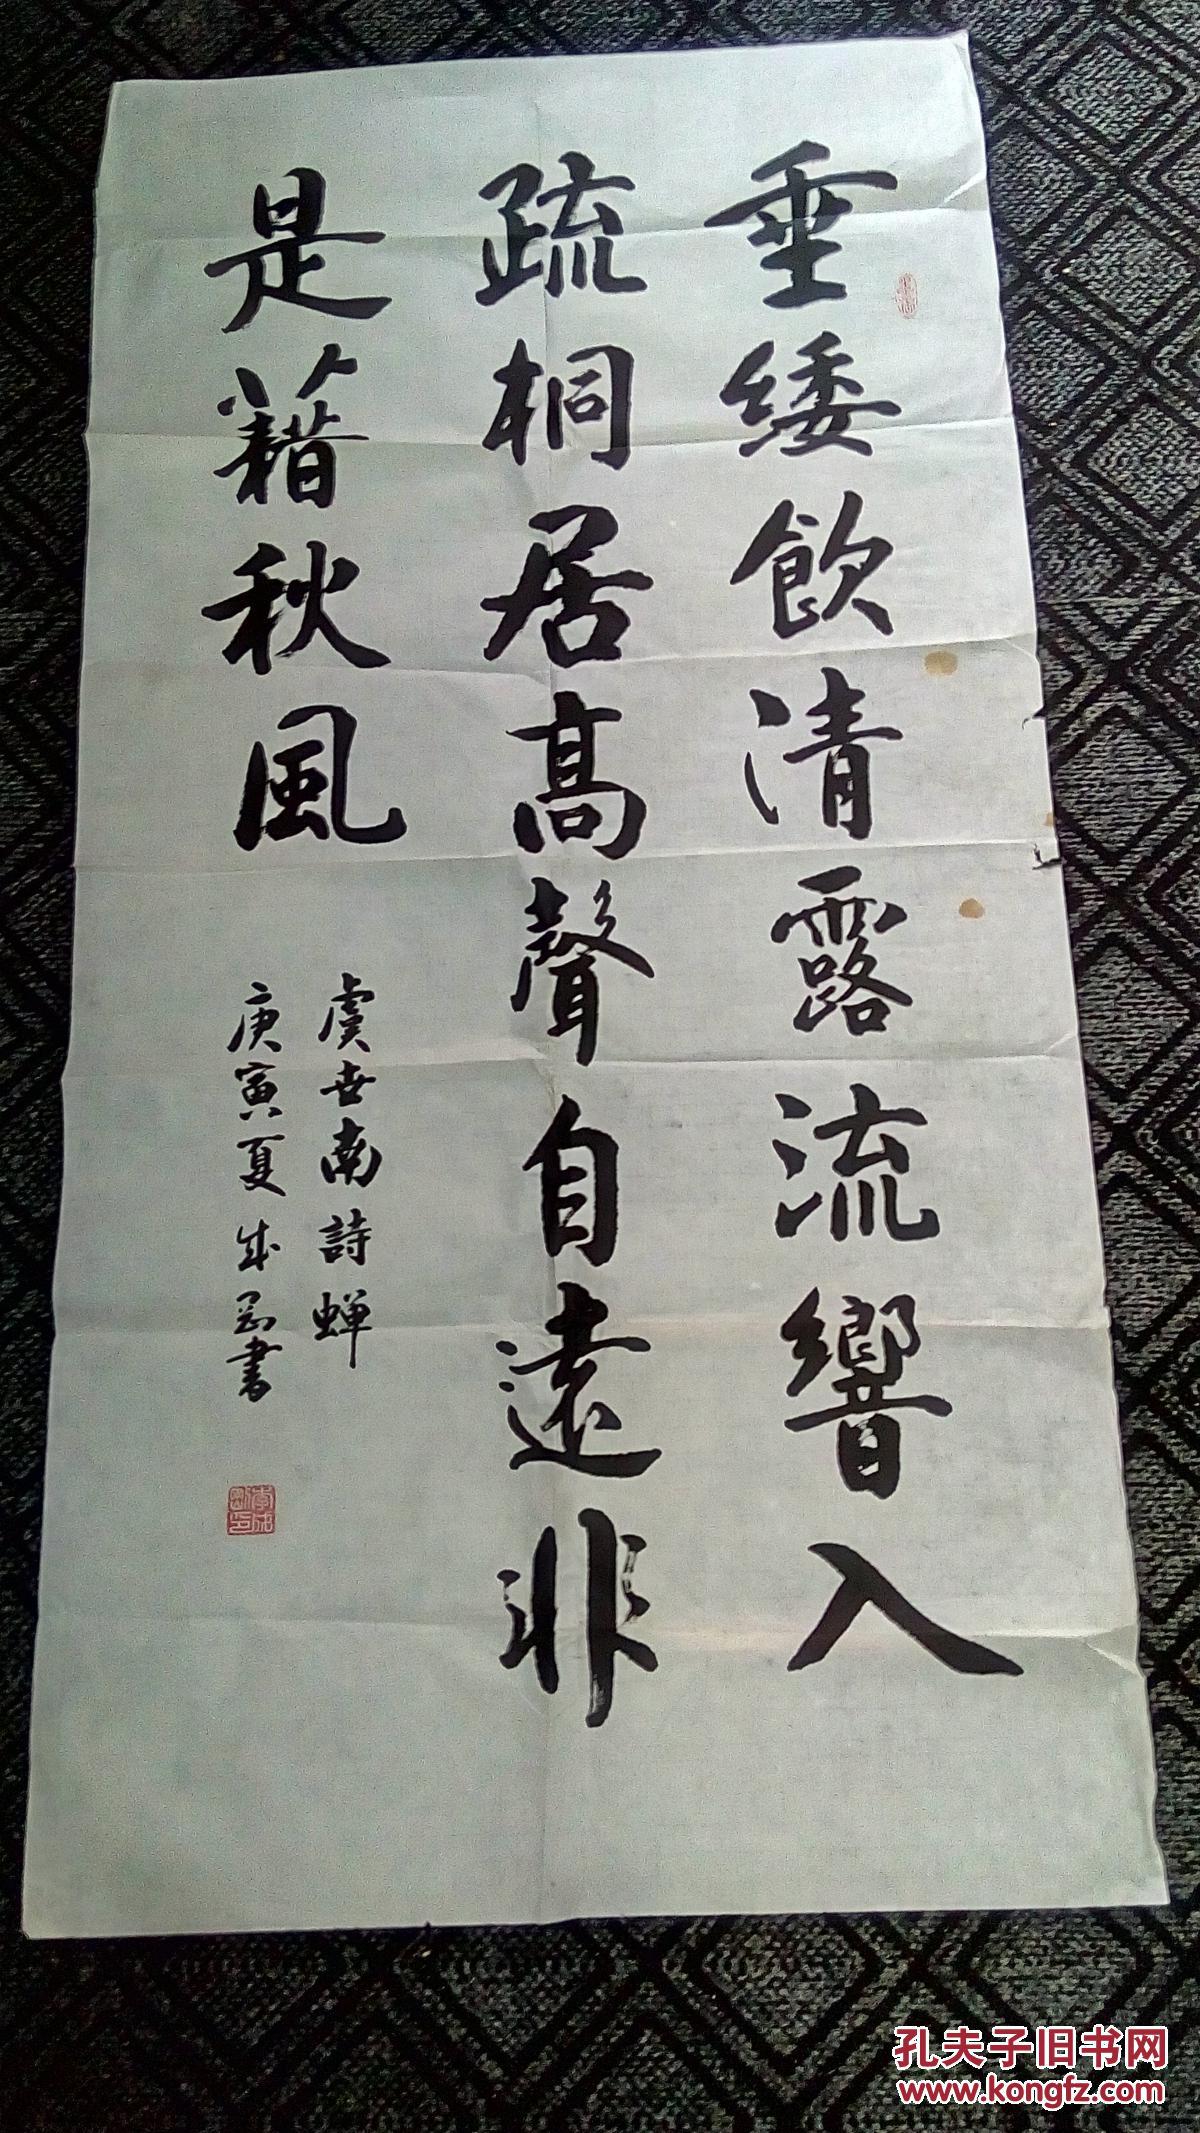 垂緌飲清露流響入
疏桐居高聲自遠非
是藉秋風
虞世南詩蝉
庚寅夏成剛書
孔夫子旧书网
www.kongfz.com